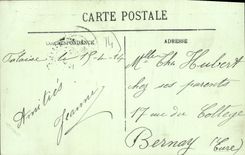 CARTE POSTALE
CORRESPONDANCE
ADRESSE
Falaise le 15-4-14
Amitiés
Jeanne
Mlle Cha Hubert
chez ses parents
17 rue du Collège
Bernay
(Eure)